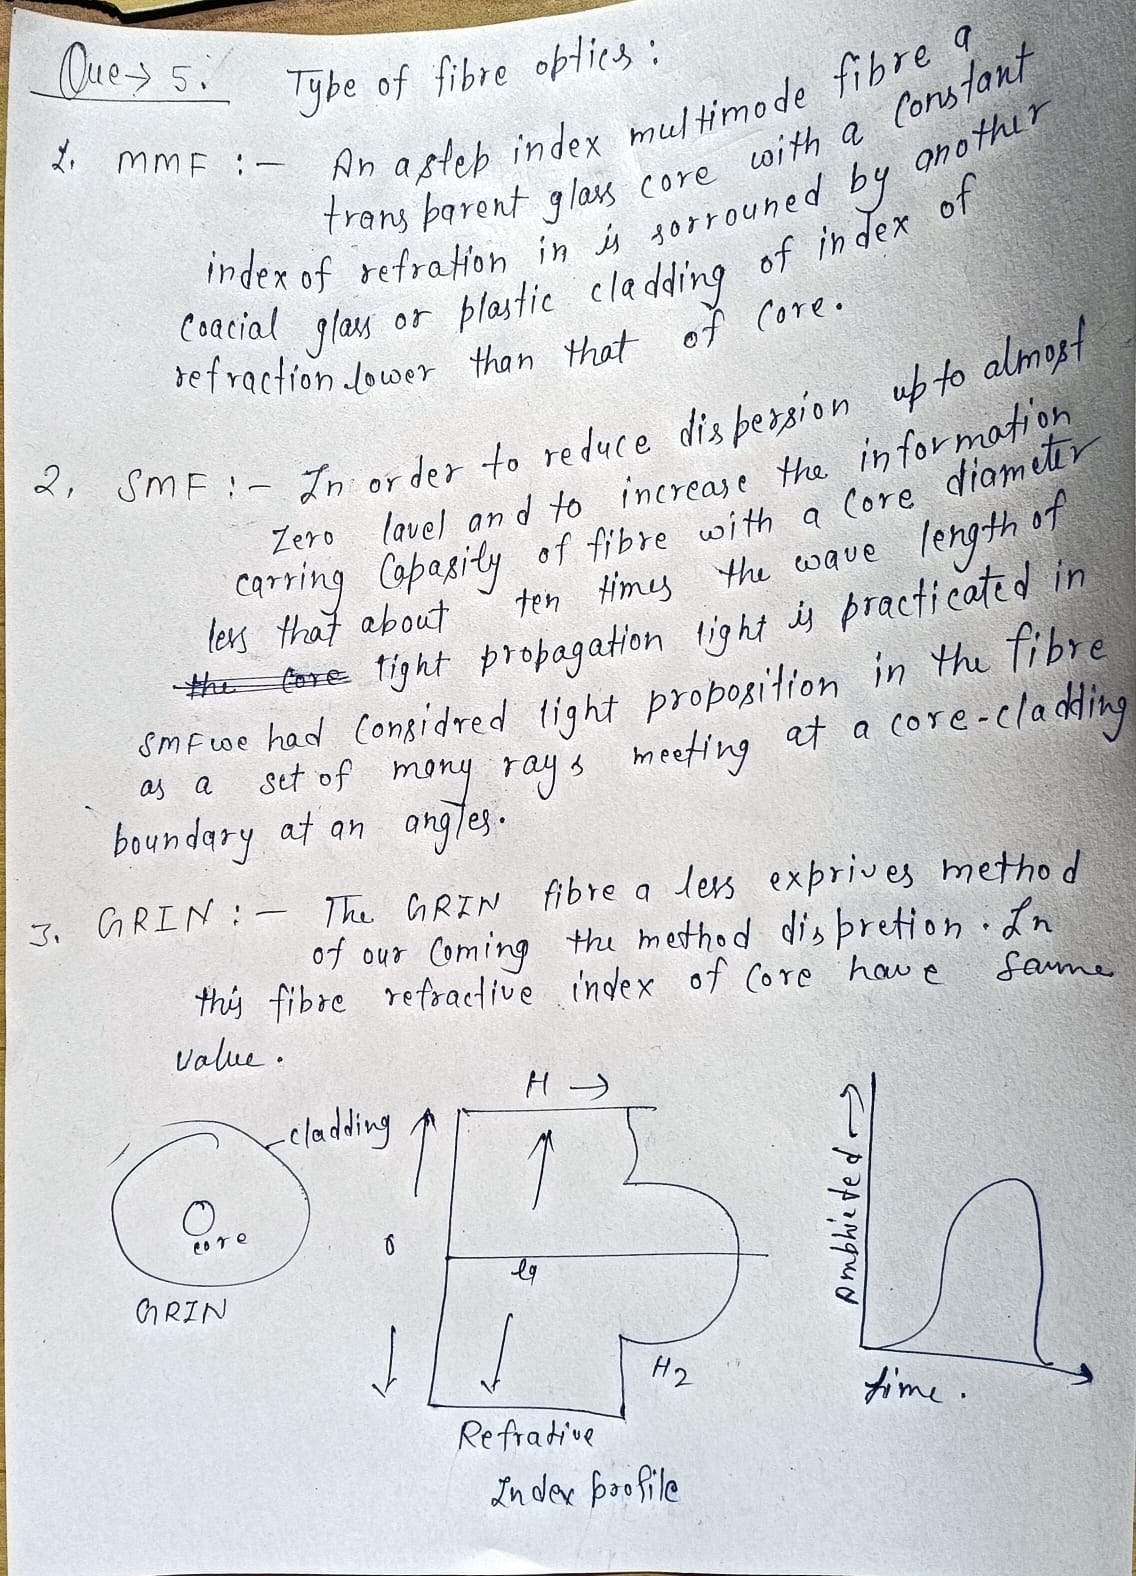 Que→ 5. Type of fibre optics :
1. MMF :- An a step index multimode fibre a
transparent glass core with a constant
index of refration in is sorrouned by another
coacial glass or plastic cladding of index of
refraction lower than that of core.
2. SMF :- In order to reduce dispersion up to almost
Zero lavel and to increase the information
carring Capasity of fibre with a Core diameter
less that about ten times the wave length of
the core tight propagation light is practicated in
SMF we had Considred light proposition in the fibre
as a set of many rays meeting at a core-cladding
boundary at an angles.
3. GRIN :- The GRIN fibre a less exprives method
of our Coming the method dispretion. In
this fibre refractive index of Core have saume
value.
cladding
core
GRIN
H →
H2
Refrative
Index profile
time.